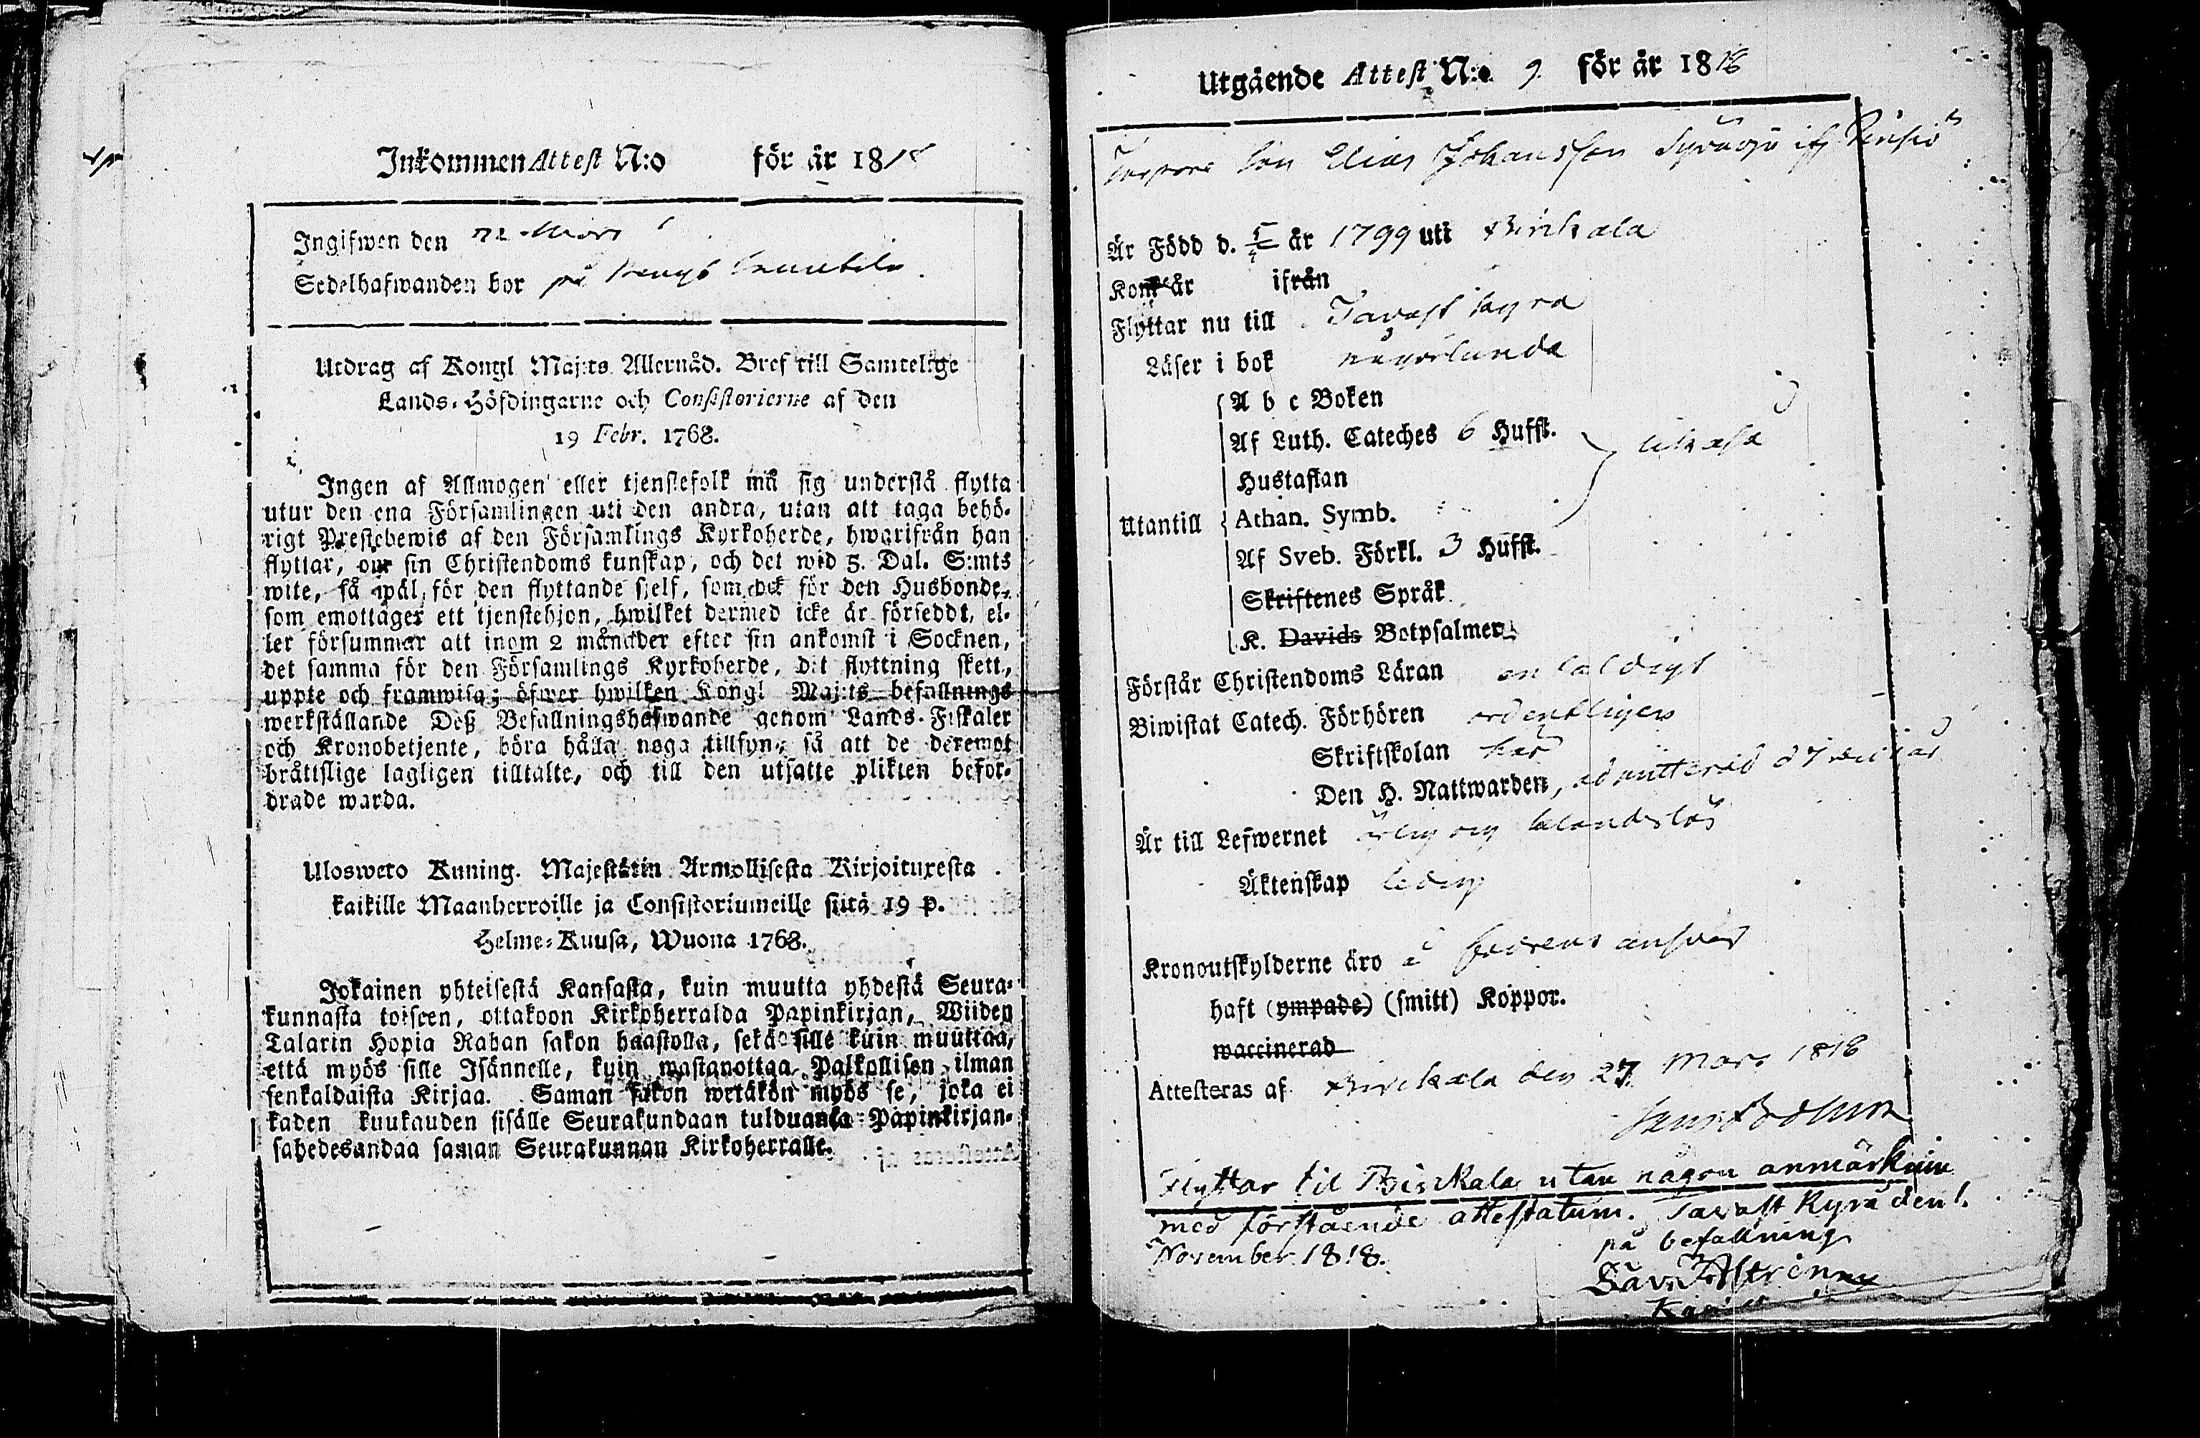 Inkommen Attest N:o för år 1818
Ingifwen den Mars
Sedelhafwanden bor på
Utdrag af Kongl Maj:ts Allernåd. Bref till Samtelige
Lands-Höfdingarne och Consistorierne af den
19 Febr. 1768.
Ingen af Allmogen eller tjenstefolk må sig understå flytta
utur den ena Församlingen uti den andra, utan att taga behö-
rigt Prestebewis af den Församlings Kyrkoherde, hwarifrån han
flyttar, om sin Christendoms kunskap, och det wid 5. Dal. S:mts
wite, så wäl för den flyttande sjelf, som ock för den Husbonde,
som emottager ett tjenstehjon, hwilket dermed icke är försedt, el-
ler försummar att inom 2 månader efter sin ankomst i Socknen,
det samma för den Församlings Kyrkoherde, dit flyttning skett,
uppte och framwisa; öfwer hwilken Kongl Maj:ts befallnings
werkställande Deß Befallningshafwande genom Lands-Fiskaler
och Kronobetjente, böra hålla noga tillsyn, så att de deremot
bråttslige lagligen tilltalte, och till den utsatte plikten befor-
drade warda.
Ulosweto Kuning. Majestätin Armollisesta Kirjoituxesta
kaikille Maanherroille ja Consistoriumeille siitä 19 p.
Helme-Kuusa, Wuona 1768.
Jokainen yhteisestä Kansasta, kuin muutta yhdestä Seura-
kunnasta toiseen, ottakoon Kirkoherralda Papinkirjan, Wiiden
Talarin Hopia Rahan sakon haastolla, sekä sille kuin muuttaa,
että myös sille Isännelle, kuin wastanottaa Palkollisen ilman
senkaldaista Kirjaa. Saman sakon wetäkön myös se, joka ei
kaden kuukauden sisälle Seurakundaan tulduansa Papinkirjan-
sahedesandaa saman Seurakunnan Kirkoherralle.
Utgående Attest N:o 9. för år 1818
son Elias Johansson ifr
Är Född d. 5 år 1799 uti Birkala
Kom år ifrån
Flyttar nu till Tavastkyra
Läser i bok någorlunda
A b c Boken
Af Luth. Cateches 6 Hufst.
Hustaflan
Utantill Athan. Symb.
Af Sveb. Förkl. 3 Hufst.
Skriftenes Språk
K. Davids Botpsalmer
Förstår Christendoms Läran enfaldigt
Biwistat Catech. Förhören ordentligen
Skriftskolan
Den H. Nattwarden, admitterad
Är till Lefwernet ärlig och
Äktenskap ledig
Kronoutskylderne äro å fadrens answar
haft (ympade) (smitt) Koppor.
waccinerad
Attesteras af Birckala den 27. Mars 1818
Flyttar til Birckala utan någon anmärkning
med förstående attestatum. Tavastkyra den 1.
November 1818.
på befallning